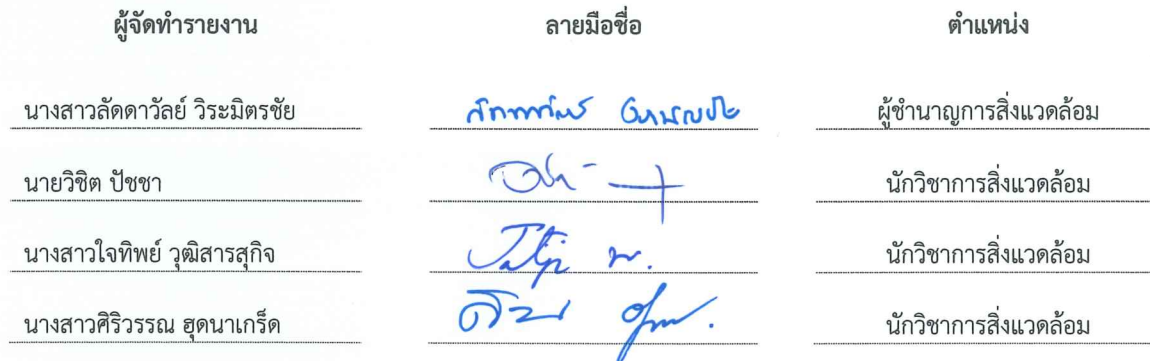 ผู้จัดทำรายงาน ลายมือชื่อ ตำแหน่ง
นางสาวลัดดาวัลย์ วิระมิตรชัย ผู้ชำนาญการสิ่งแวดล้อม
นายวิชิต ปัชชา นักวิชาการสิ่งแวดล้อม
นางสาวใจทิพย์ วุฒิสารสุกิจ นักวิชาการสิ่งแวดล้อม
นางสาวศิริวรรณ ฮุดนาเกร็ด นักวิชาการสิ่งแวดล้อม